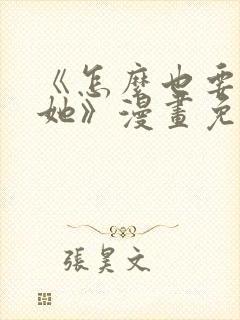 《怎麼也要
她》漫畫免
張昊文